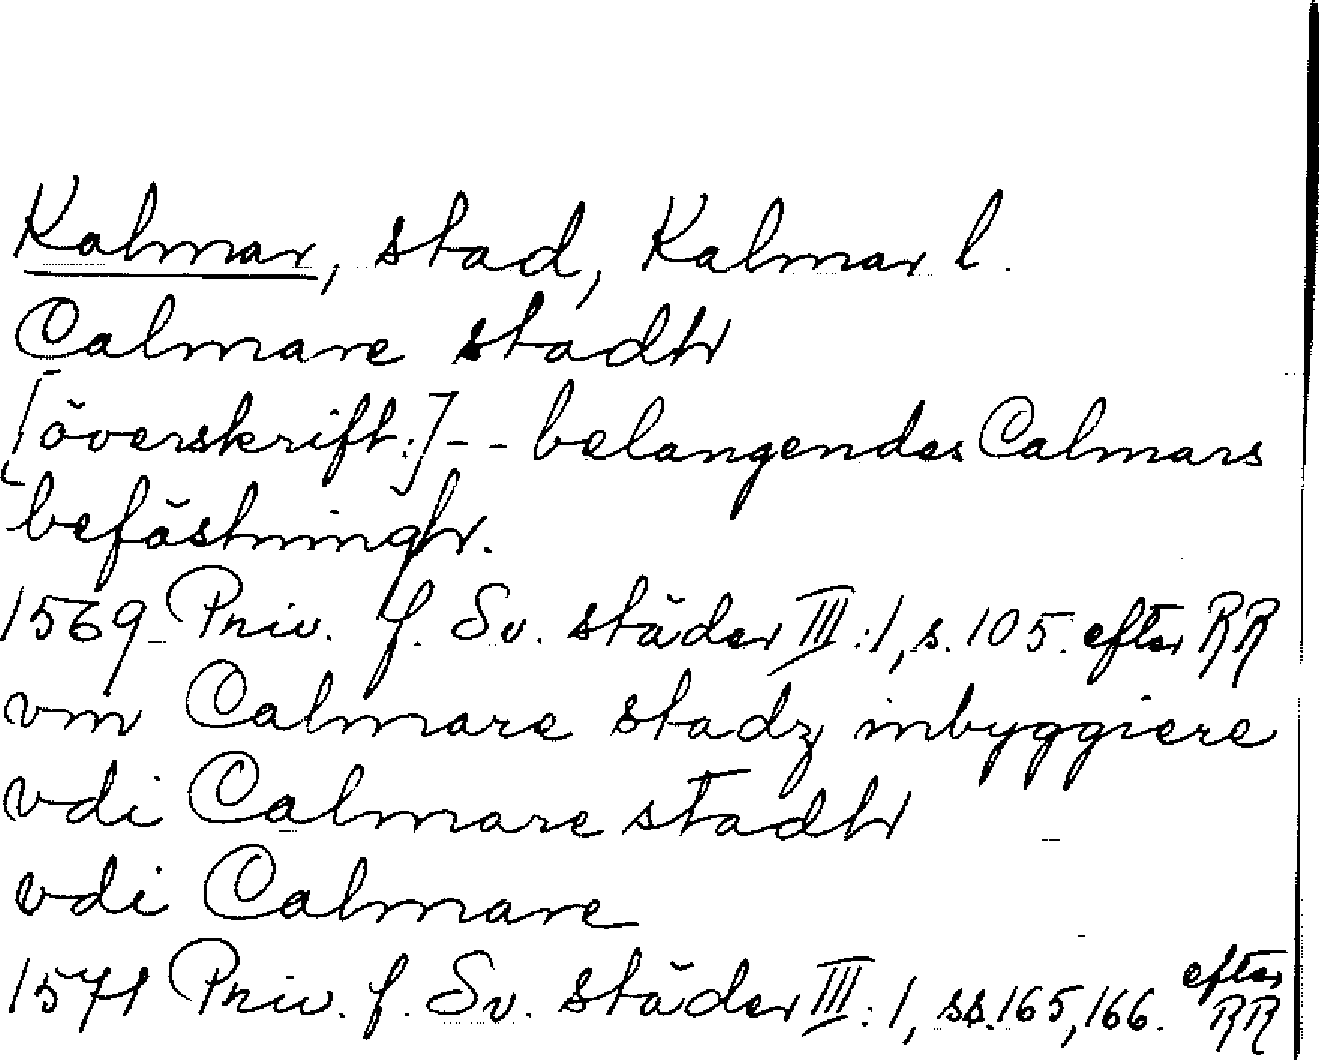 Kalmar, stad, Kalmar l.
Calmare stadtt
[överskrift:] -- belangendes Calmars
befästningh.
1569 Priv. f. Sv. städer III:1, s. 105. efter RR
vm Calmare stadz inbyggiere
vdi Calmare stadh
vdi Calmare
1571 Priv. f. Sv. städer III:1, ss. 165, 166. efter RR